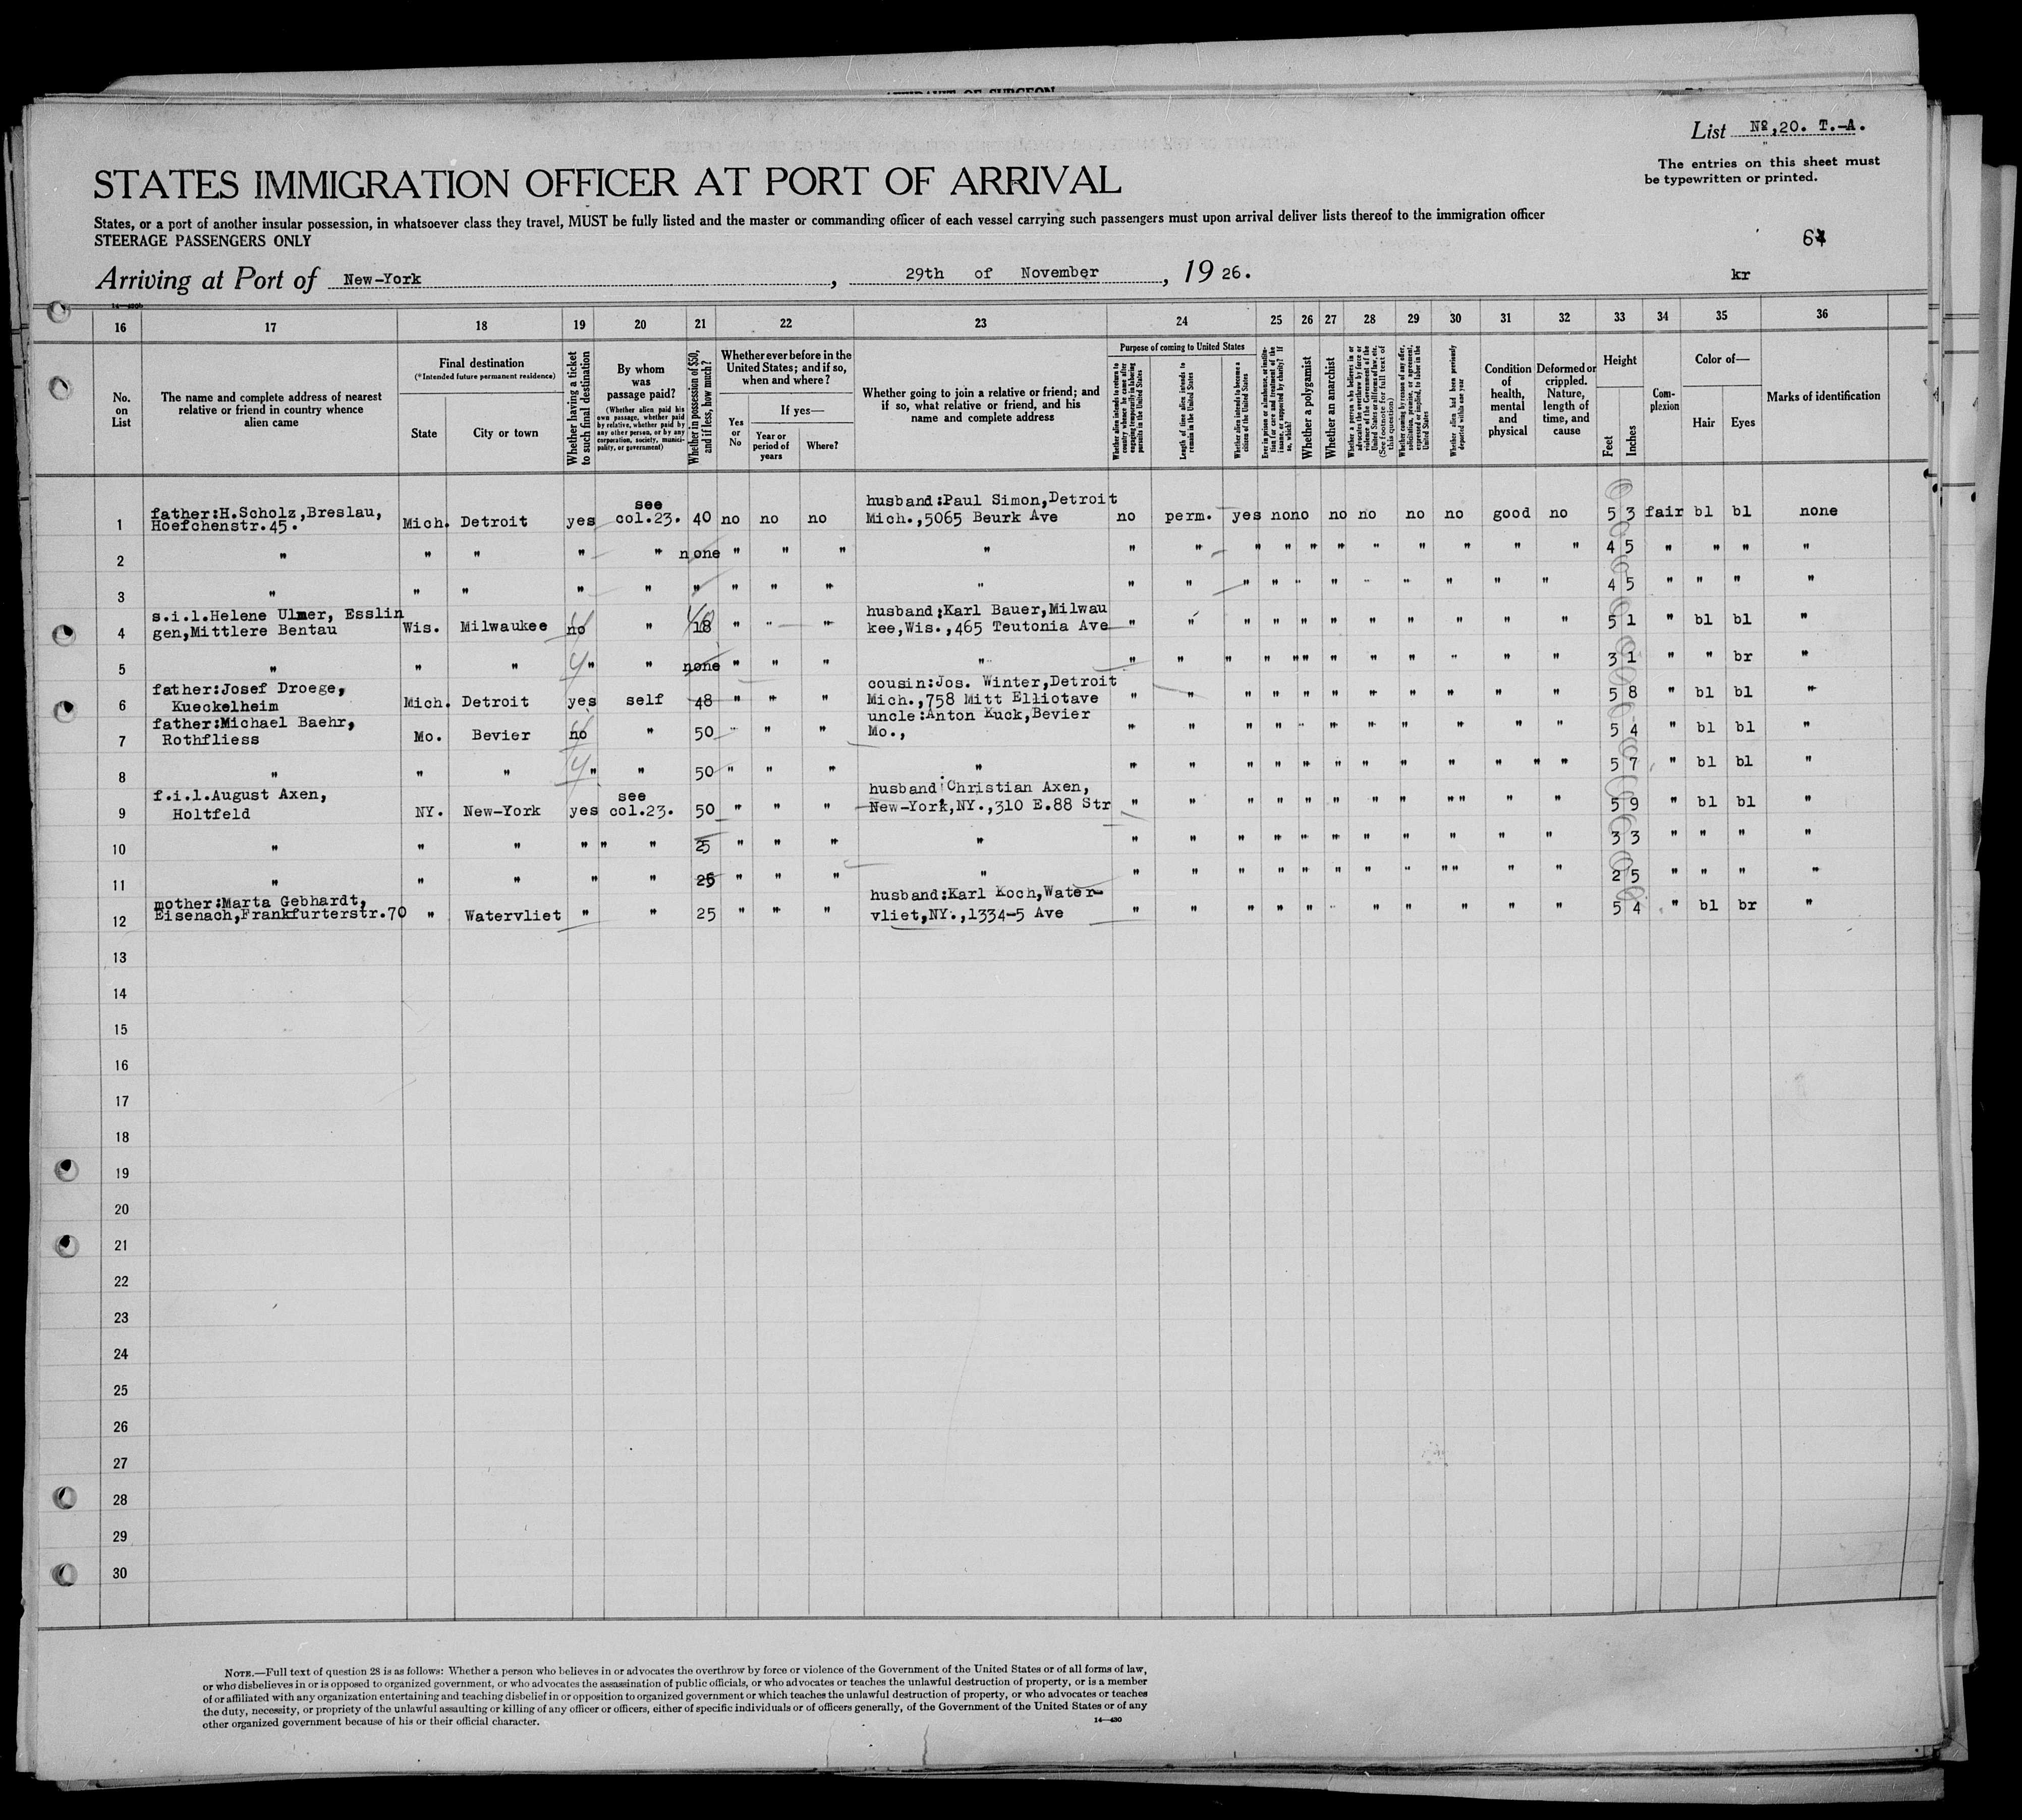 AFFIDAVIT OF SURGEON
List Nº,20. T.-A.
The entries on this sheet must
be typewritten or printed.
STATES IMMIGRATION OFFICER AT PORT OF ARRIVAL
States, or a port of another insular possession, in whatsoever class they travel, MUST be fully listed and the master or commanding officer of each vessel carrying such passengers must upon arrival deliver lists thereof to the immigration officer
STEERAGE PASSENGERS ONLY
Arriving at Port of New-York, 29th of November, 19 26.
kr
16 17 18 19 20 21 22 23 24 25 26 27 28 29 30 31 32 33 34 35 36
No.
on
List
The name and complete address of nearest
relative or friend in country whence
alien came
Final destination
(*Intended future permanent residence)
State
City or town
Whether having a ticket
to such final destination
By whom
was
passage paid?
(Whether alien paid his
own passage, whether paid
by relative, whether paid by
any other person, or by any
corporation, society, munici-
pality, or government)
Whether in possession of $50,
and if less, how much?
Whether ever before in the
United States; and if so,
when and where?
Yes
or
No
If yes—
Year or
period of
years
Where?
Whether going to join a relative or friend; and
if so, what relative or friend, and his
name and complete address
Purpose of coming to United States
Whether alien intends to return to
country whence he came after
engaging temporarily in laboring
pursuits in the United States
Length of time alien intends to
remain in the United States
Whether alien intends to become a
citizen of the United States
Ever in prison or almshouse, or institu-
tion for care and treatment of the
insane, or supported by charity? If
so, which?
Whether a polygamist
Whether an anarchist
Whether a person who believes in or
advocates the overthrow by force or
violence of the Government of the
United States or all forms of law, etc.
(See footnote for full text of
this question)
Whether coming by reason of any offer,
solicitation, promise, or agreement,
expressed or implied, to labor in the
United States
Whether alien had been previously
deported within one year
Condition
of
health,
mental
and
physical
Deformed or
crippled.
Nature,
length of
time, and
cause
Height
Feet
Inches
Com-
plexion
Color of—
Hair
Eyes
Marks of identification
father:H.Scholz,Breslau, see husband:Paul Simon,Detroit
1 Hoefchenstr.45. Mich. Detroit yes col.23. 40 no no no Mich.,5065 Beurk Ave no perm. yes no no no no no no good no 5 3 fair bl bl none
2 " " " " " none " " " " " " " " " " " " " " " 4 5 " " " "
3 " " " " " " " " " " " " " " " " " " " " " 4 5 " " " "
s.i.l.Helene Ulmer, Esslin husband:Karl Bauer,Milwau
4 gen,Mittlere Bentau Wis. Milwaukee no " 18 " " " kee,Wis.,465 Teutonia Ave " " " " " " " " " " " 5 1 " bl bl "
5 " " " " " none " " " " " " " " " " " " " " " 3 1 " " br "
father:Josef Droege, cousin:Jos. Winter,Detroit
6 Kueckelheim Mich. Detroit yes self 48 " " " Mich.,758 Mitt Elliotave " " " " " " " " " " " 5 8 " bl bl "
father:Michael Baehr, uncle:Anton Kuck,Bevier
7 Rothfliess Mo. Bevier no " 50 " " " Mo., " " " " " " " " " " " 5 4 " bl bl "
8 " " " " " 50 " " " " " " " " " " " " " " " 5 7 " bl bl "
f.i.l.August Axen, see husband:Christian Axen,
9 Holtfeld NY. New-York yes col.23. 50 " " " New-York,NY.,310 E.88 Str " " " " " " " " " " " 5 9 " bl bl "
10 " " " " " 25 " " " " " " " " " " " " " " " 3 3 " " " "
11 " " " " " 25 " " " " " " " " " " " " " " " 2 5 " " " "
mother:Marta Gebhardt, husband:Karl Koch,Water-
12 Eisenach,Frankfurterstr.70 " Watervliet " " 25 " " " vliet,NY.,1334-5 Ave " " " " " " " " " " " 5 4 " bl br "
13
14
15
16
17
18
19
20
21
22
23
24
25
26
27
28
29
30
NOTE.—Full text of question 28 is as follows: Whether a person who believes in or advocates the overthrow by force or violence of the Government of the United States or of all forms of law,
or who disbelieves in or is opposed to organized government, or who advocates the assassination of public officials, or who advocates or teaches the unlawful destruction of property, or is a member
of or affiliated with any organization entertaining and teaching disbelief in or opposition to organized government or which teaches the unlawful destruction of property, or who advocates or teaches
the duty, necessity, or propriety of the unlawful assaulting or killing of any officer or officers, either of specific individuals or of officers generally, of the Government of the United States or of any
other organized government because of his or their official character.
14—430